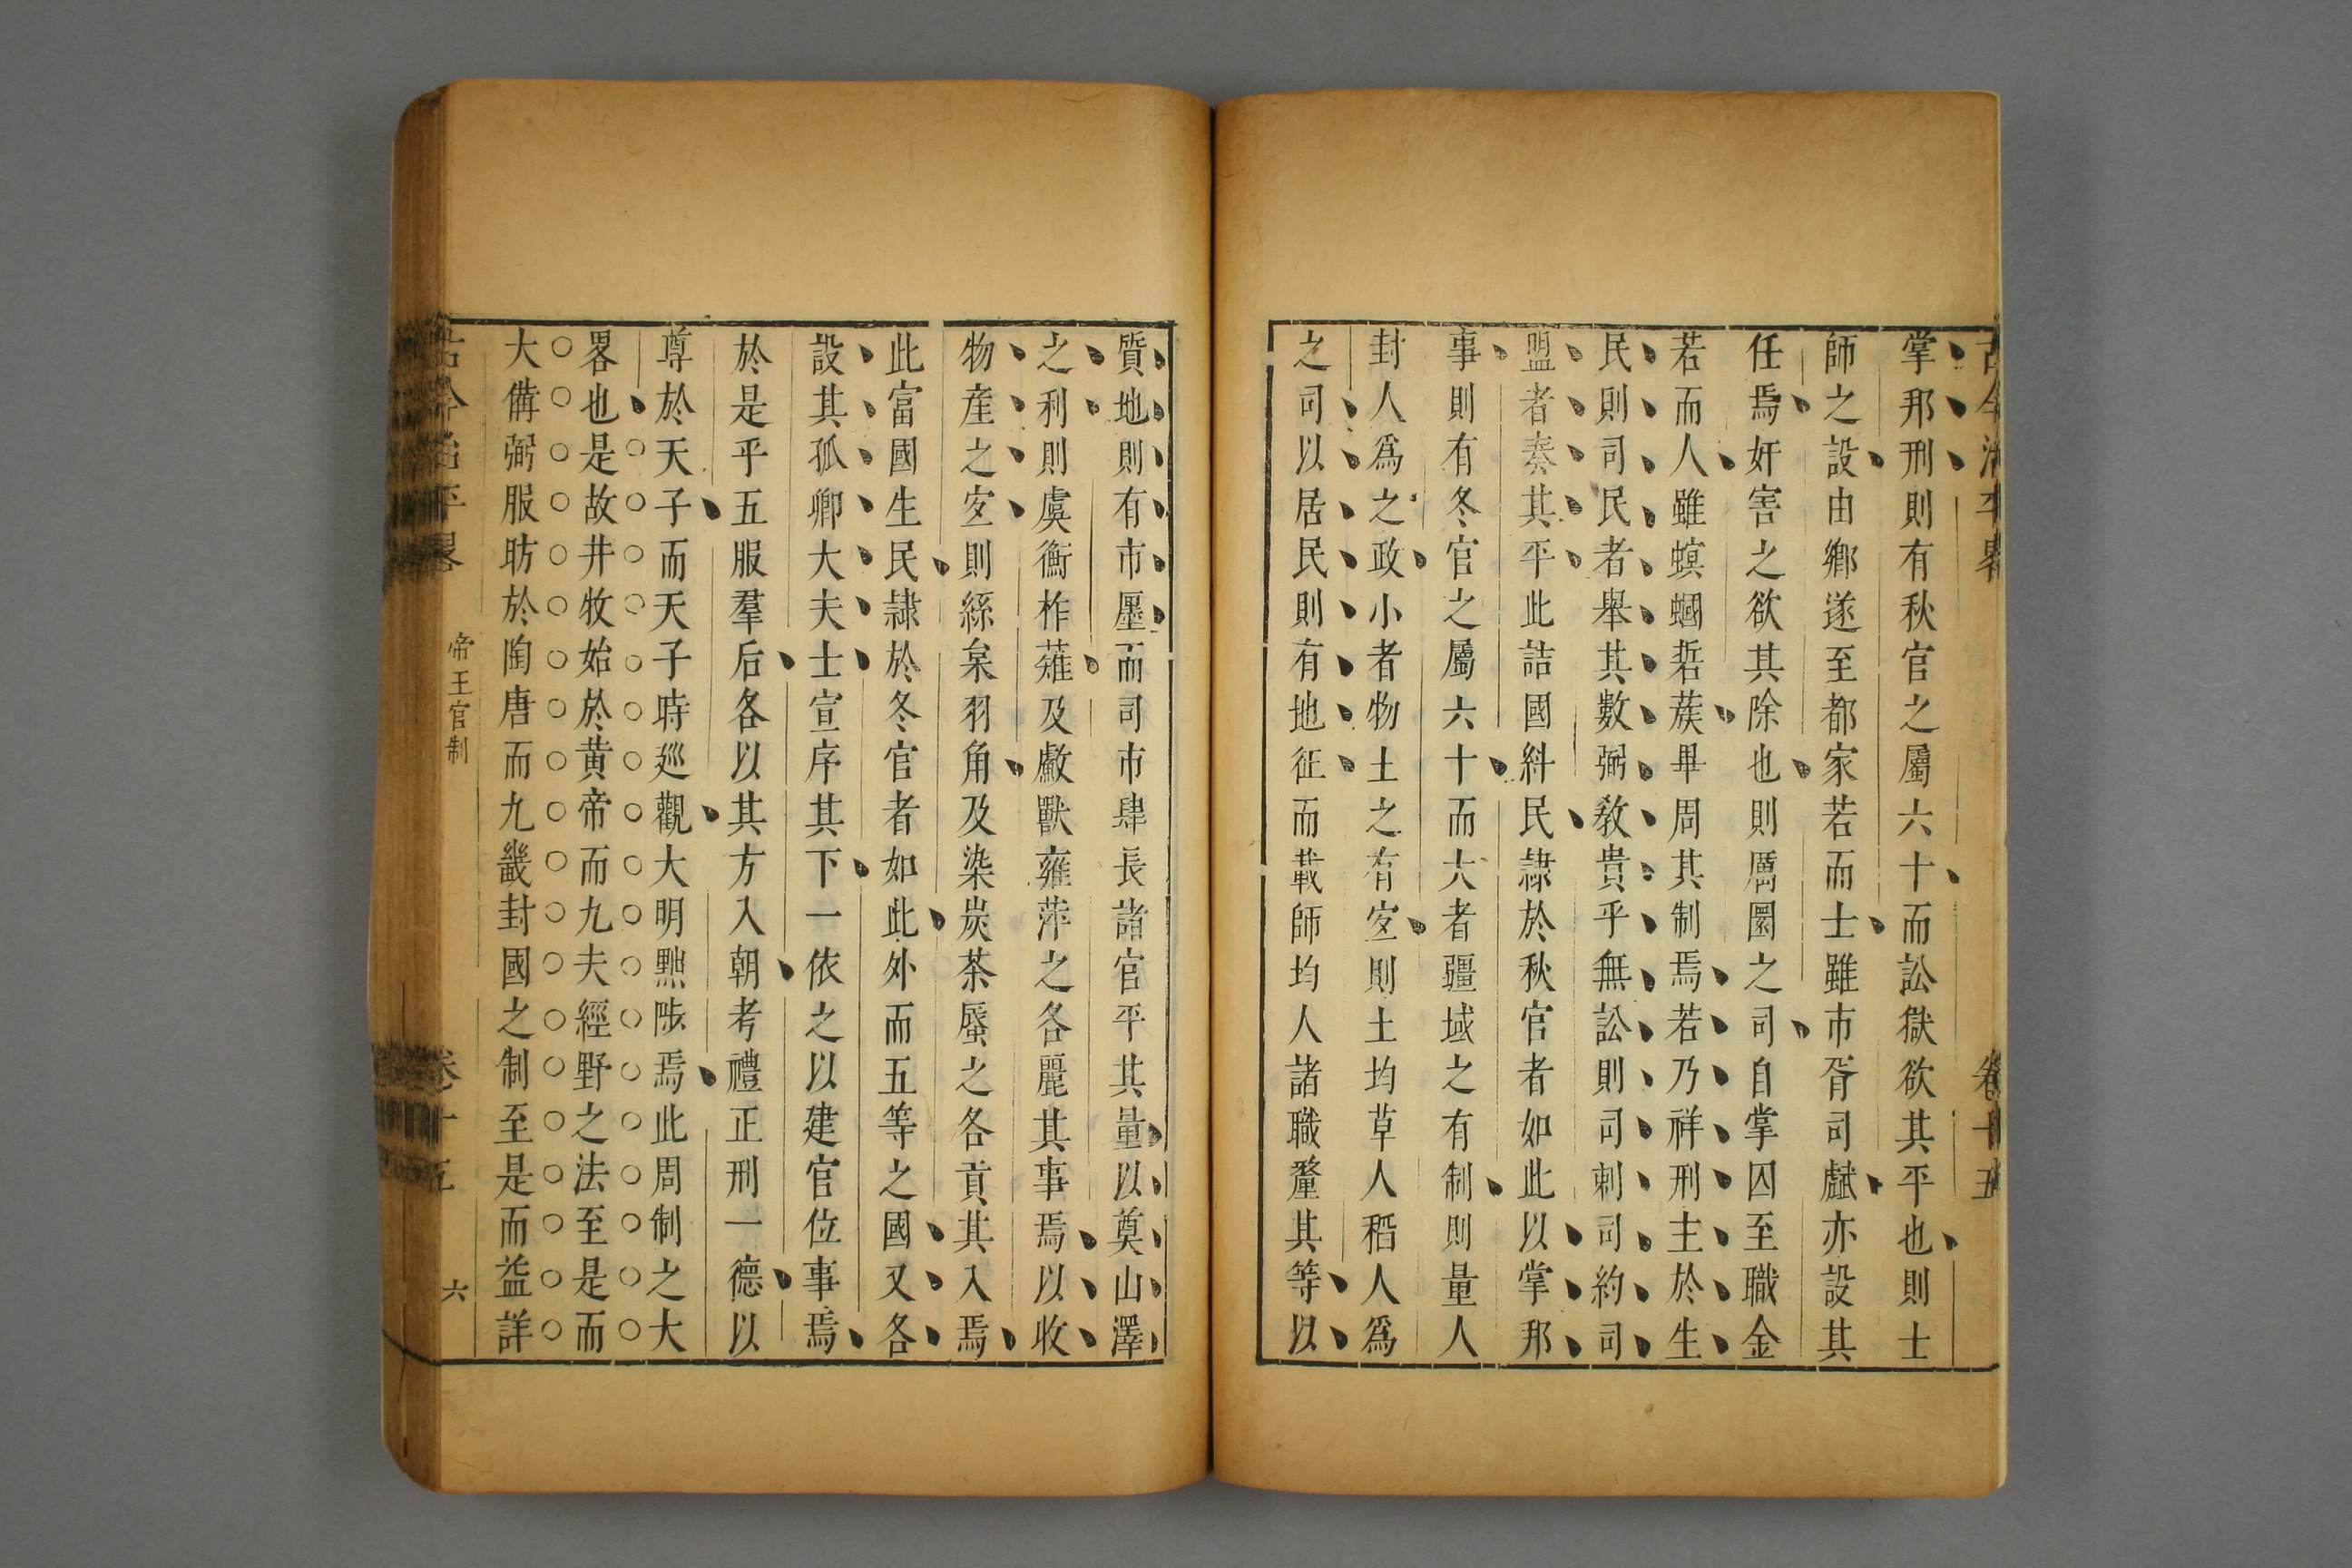 古今治平畧
卷十五
掌邢刑則有秋官之屬六十而訟獄欲其平也則士
師之設由鄉遂至都家若而士雖市胥司虣亦設其
任焉奸害之欲其除也則厲圉之司自掌囚至職金
若而人雖螟蟈硩蔟畢周其制焉若乃祥刑主於生
民則司民者舉其數弼教貴乎無訟則司刺司約司
盟者奏其平此詰國糾民隷於秋官者如此以掌邢
事則有冬官之屬六十而大者疆域之有制則量人
封人爲之政小者物土之有宐則土均草人稻人爲
之司以居民則有地征而載師均人諸職釐其等以
質地則有市廛而司市肆長諸官平其量以奠山澤
之利則虞衡柞薙及䱷獸雍萍之各麗其事焉以收
物産之宐則絲枲羽角及染炭茶蜃之各貢其入焉
此富國生民隷於冬官者如此外而五等之國又各
設其孤卿大夫士宣序其下一依之以建官位事焉
於是乎五服羣后各以其方入朝考禮正刑一德以
尊於天子而天子時廵觀大明黜陟焉此周制之大
畧也是故井牧始於黃帝而九夫經野之法至是而
大備弼服昉於陶唐而九畿封國之制至是而益詳
古今治平畧
帝王官制
卷十五
六